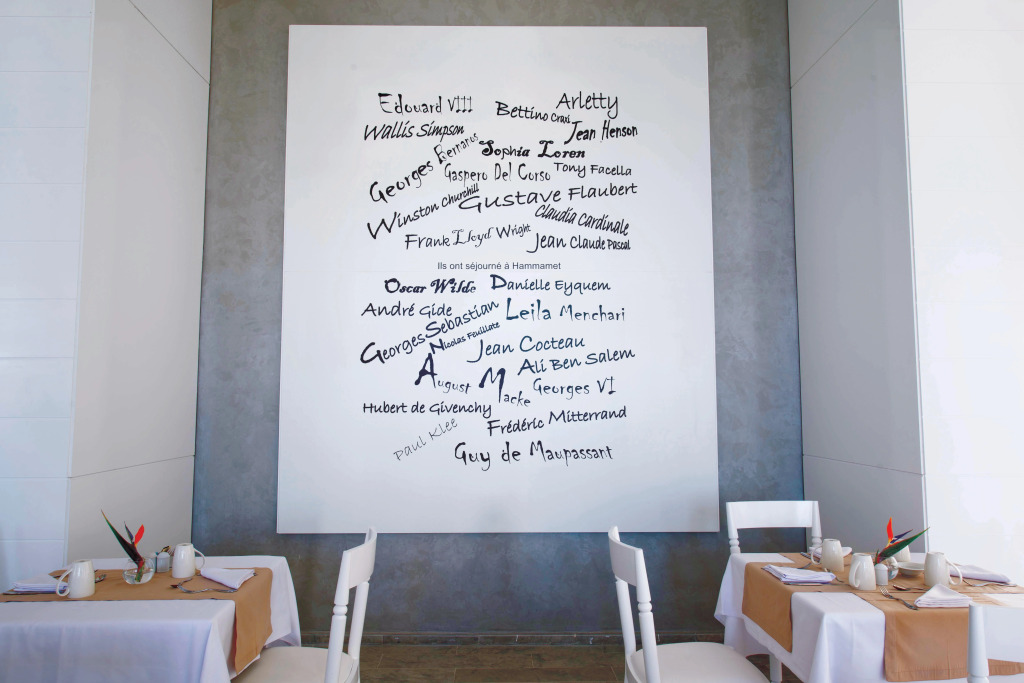 Edouard VIII
Bettino Craxi
Arletty
Wallis Simpson
Jean Henson
Georges Bernanos
Sophia Loren
Gaspero Del Corso
Tony Facella
Winston Churchill
Gustave Flaubert
Claudia Cardinale
Frank Lloyd Wright
Jean Claude Pascal
Ils ont séjourné à Hammamet
Oscar Wilde
Danielle Eyquem
André Gide
Georges Sebastian
Leila Menchari
Nicolas Feuillate
Jean Cocteau
Ali Ben Salem
August Macke
Georges VI
Hubert de Givenchy
Frédéric Mitterrand
Paul Klee
Guy de Maupassant